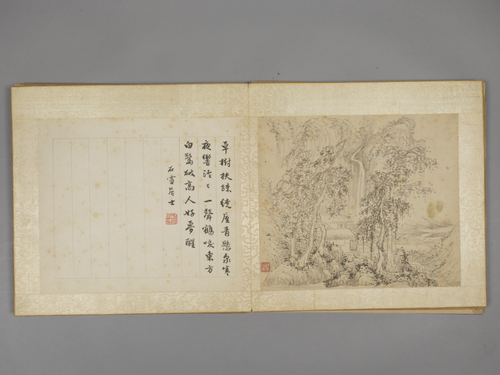 草樹扶疎繞屋青懸泉寒
夜響泠〻一聲鶴唳東方
白驚破高人好夢醒
石雪居士